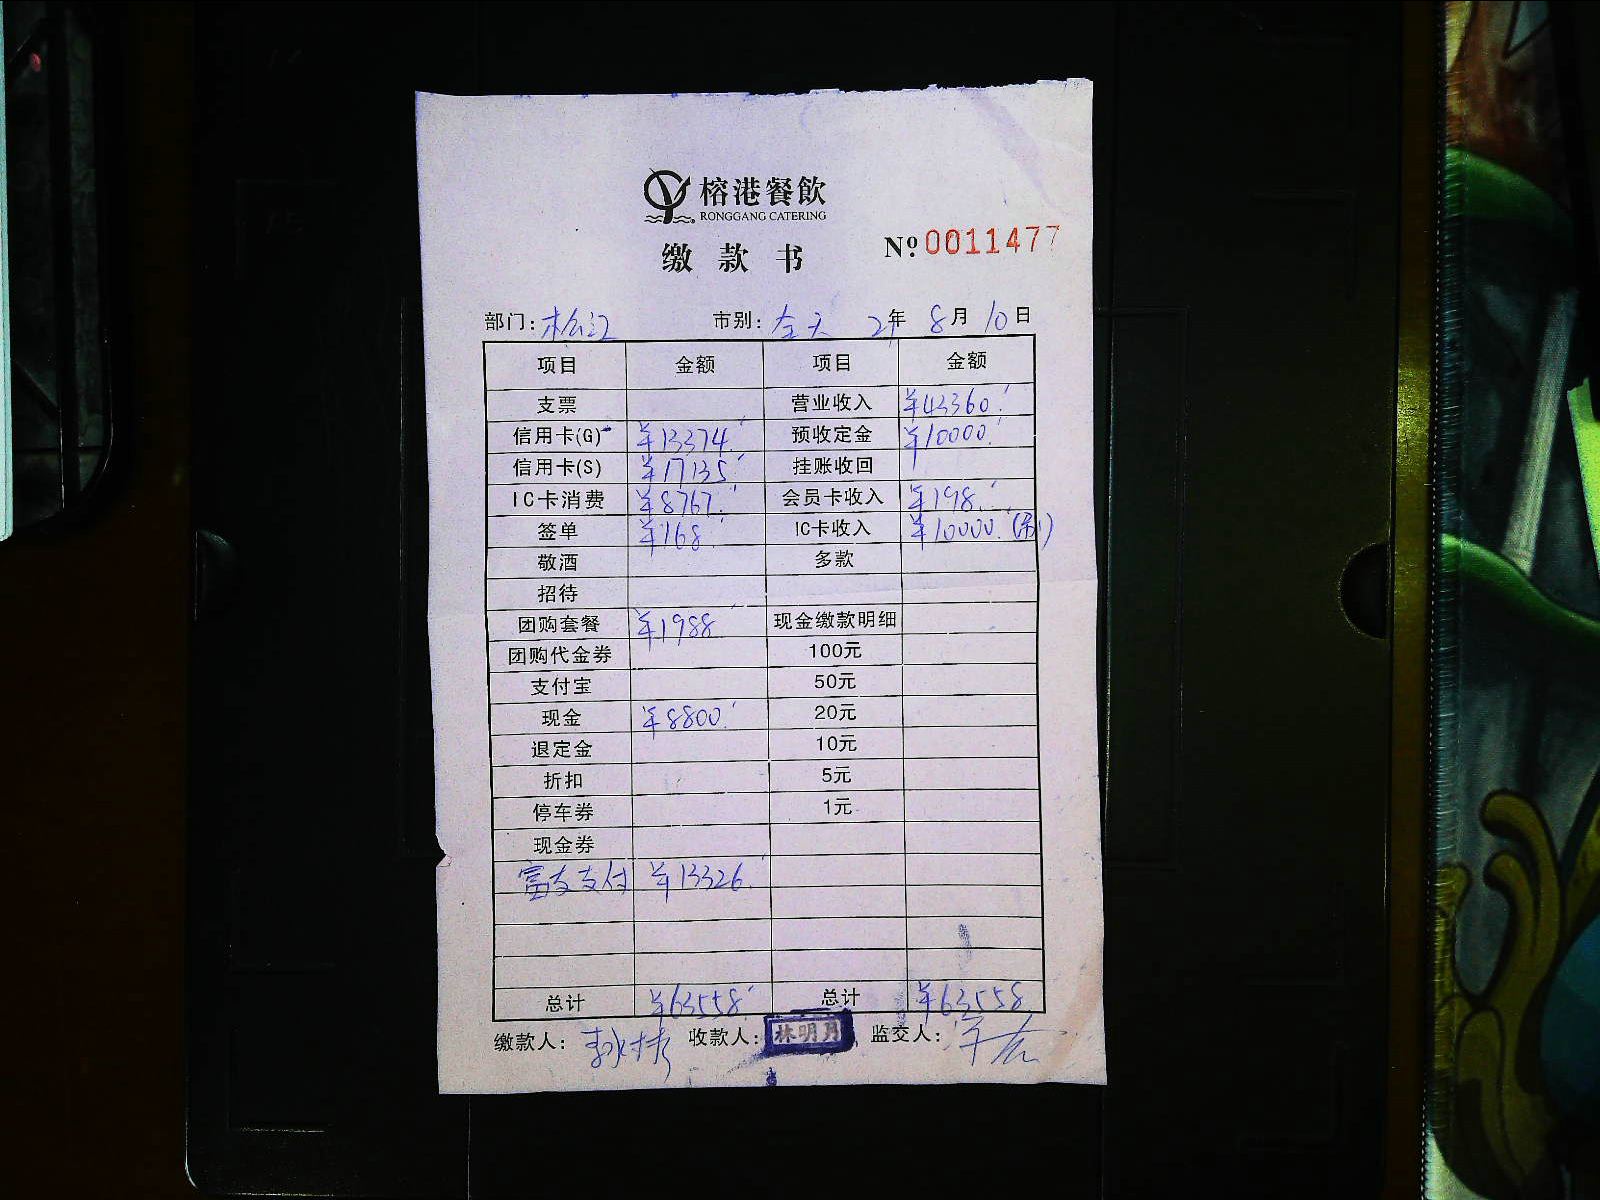 榕港餐飲
RONGGANG CATERING
缴款书
№ 0011477
部门: 松江 市别: 全天 21年 8月 10日
项目 金额 项目 金额
支票 营业收入 ¥43360.
信用卡(G) ¥13374. 预收定金 ¥10000.
信用卡(S) ¥17135 挂账收回
IC卡消费 ¥8767. 会员卡收入 ¥198.
签单 ¥168. IC卡收入 ¥10000.
敬酒 多款
招待
团购套餐 ¥1988 现金缴款明细
团购代金券 100元
支付宝 50元
现金 ¥8800. 20元
退定金 10元
折扣 5元
停车券 1元
现金券
富友支付 ¥13326.
总计 ¥63558. 总计 ¥63558.
缴款人: 收款人: 林明月 监交人: